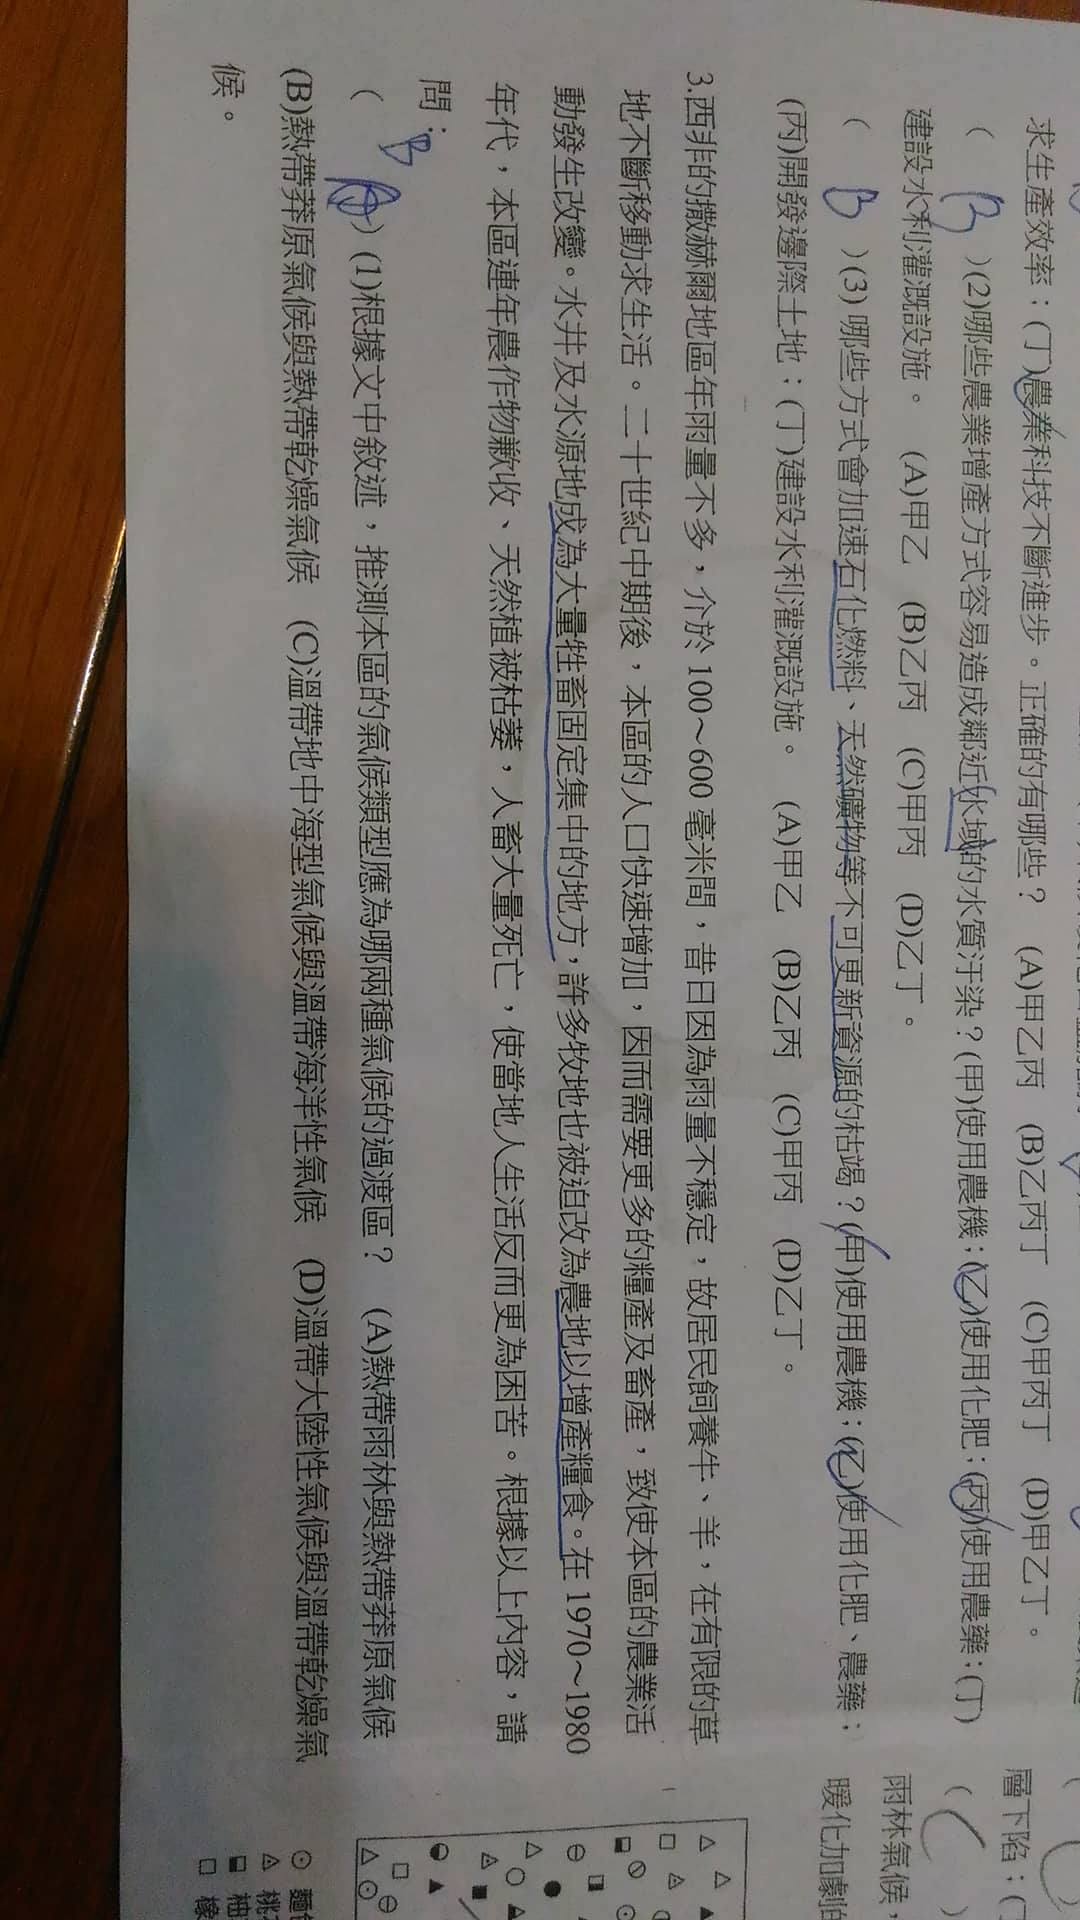 求生產效率；(丁)農業科技不斷進步。正確的有哪些？ (A)甲乙丙 (B)乙丙丁 (C)甲丙丁 (D)甲乙丁。
( B )(2)哪些農業增產方式容易造成鄰近水域的水質汙染？(甲)使用農機；(乙)使用化肥；(丙)使用農藥；(丁)
建設水利灌溉設施。 (A)甲乙 (B)乙丙 (C)甲丙 (D)乙丁。
( B )(3)哪些方式會加速石化燃料、天然礦物等不可更新資源的枯竭？(甲)使用農機；(乙)使用化肥、農藥；
(丙)開發邊際土地；(丁)建設水利灌溉設施。 (A)甲乙 (B)乙丙 (C)甲丙 (D)乙丁。
3.西非的撒赫爾地區年雨量不多，介於100～600毫米間，昔日因為雨量不穩定，故居民飼養牛、羊，在有限的草
地不斷移動求生活。二十世紀中期後，本區的人口快速增加，因而需要更多的糧產及畜產，致使本區的農業活
動發生改變。水井及水源地成為大量牲畜固定集中的地方，許多牧地也被迫改為農地以增產糧食。在1970～1980
年代，本區連年農作物歉收、天然植被枯萎，人畜大量死亡，使當地人生活反而更為困苦。根據以上內容，請
問：
( B )(1)根據文中敘述，推測本區的氣候類型應為哪兩種氣候的過渡區？ (A)熱帶雨林與熱帶莽原氣候
(B)熱帶莽原氣候與熱帶乾燥氣候 (C)溫帶地中海型氣候與溫帶海洋性氣候 (D)溫帶大陸性氣候與溫帶乾燥氣
候。
層下陷；(
( C )
雨林氣候，
暖化加劇的